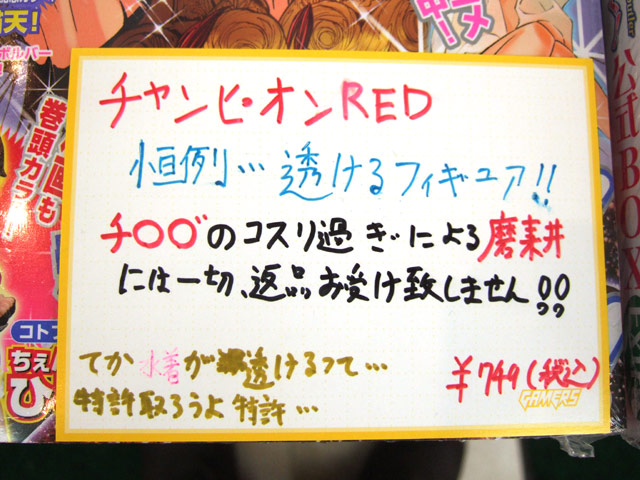 チャンピオンRED
恒例…透けるフィギュア!!
チ〇〇゛のコスリ過ぎによる磨耗
には一切、返品お受け致しません!!
てか水着が透けるって…
特許取ろうよ特許…
¥749(税込)
GAMERS
天!
ボルバー
巻頭カラー!
公式BOX
コト
ちぇ
ひ